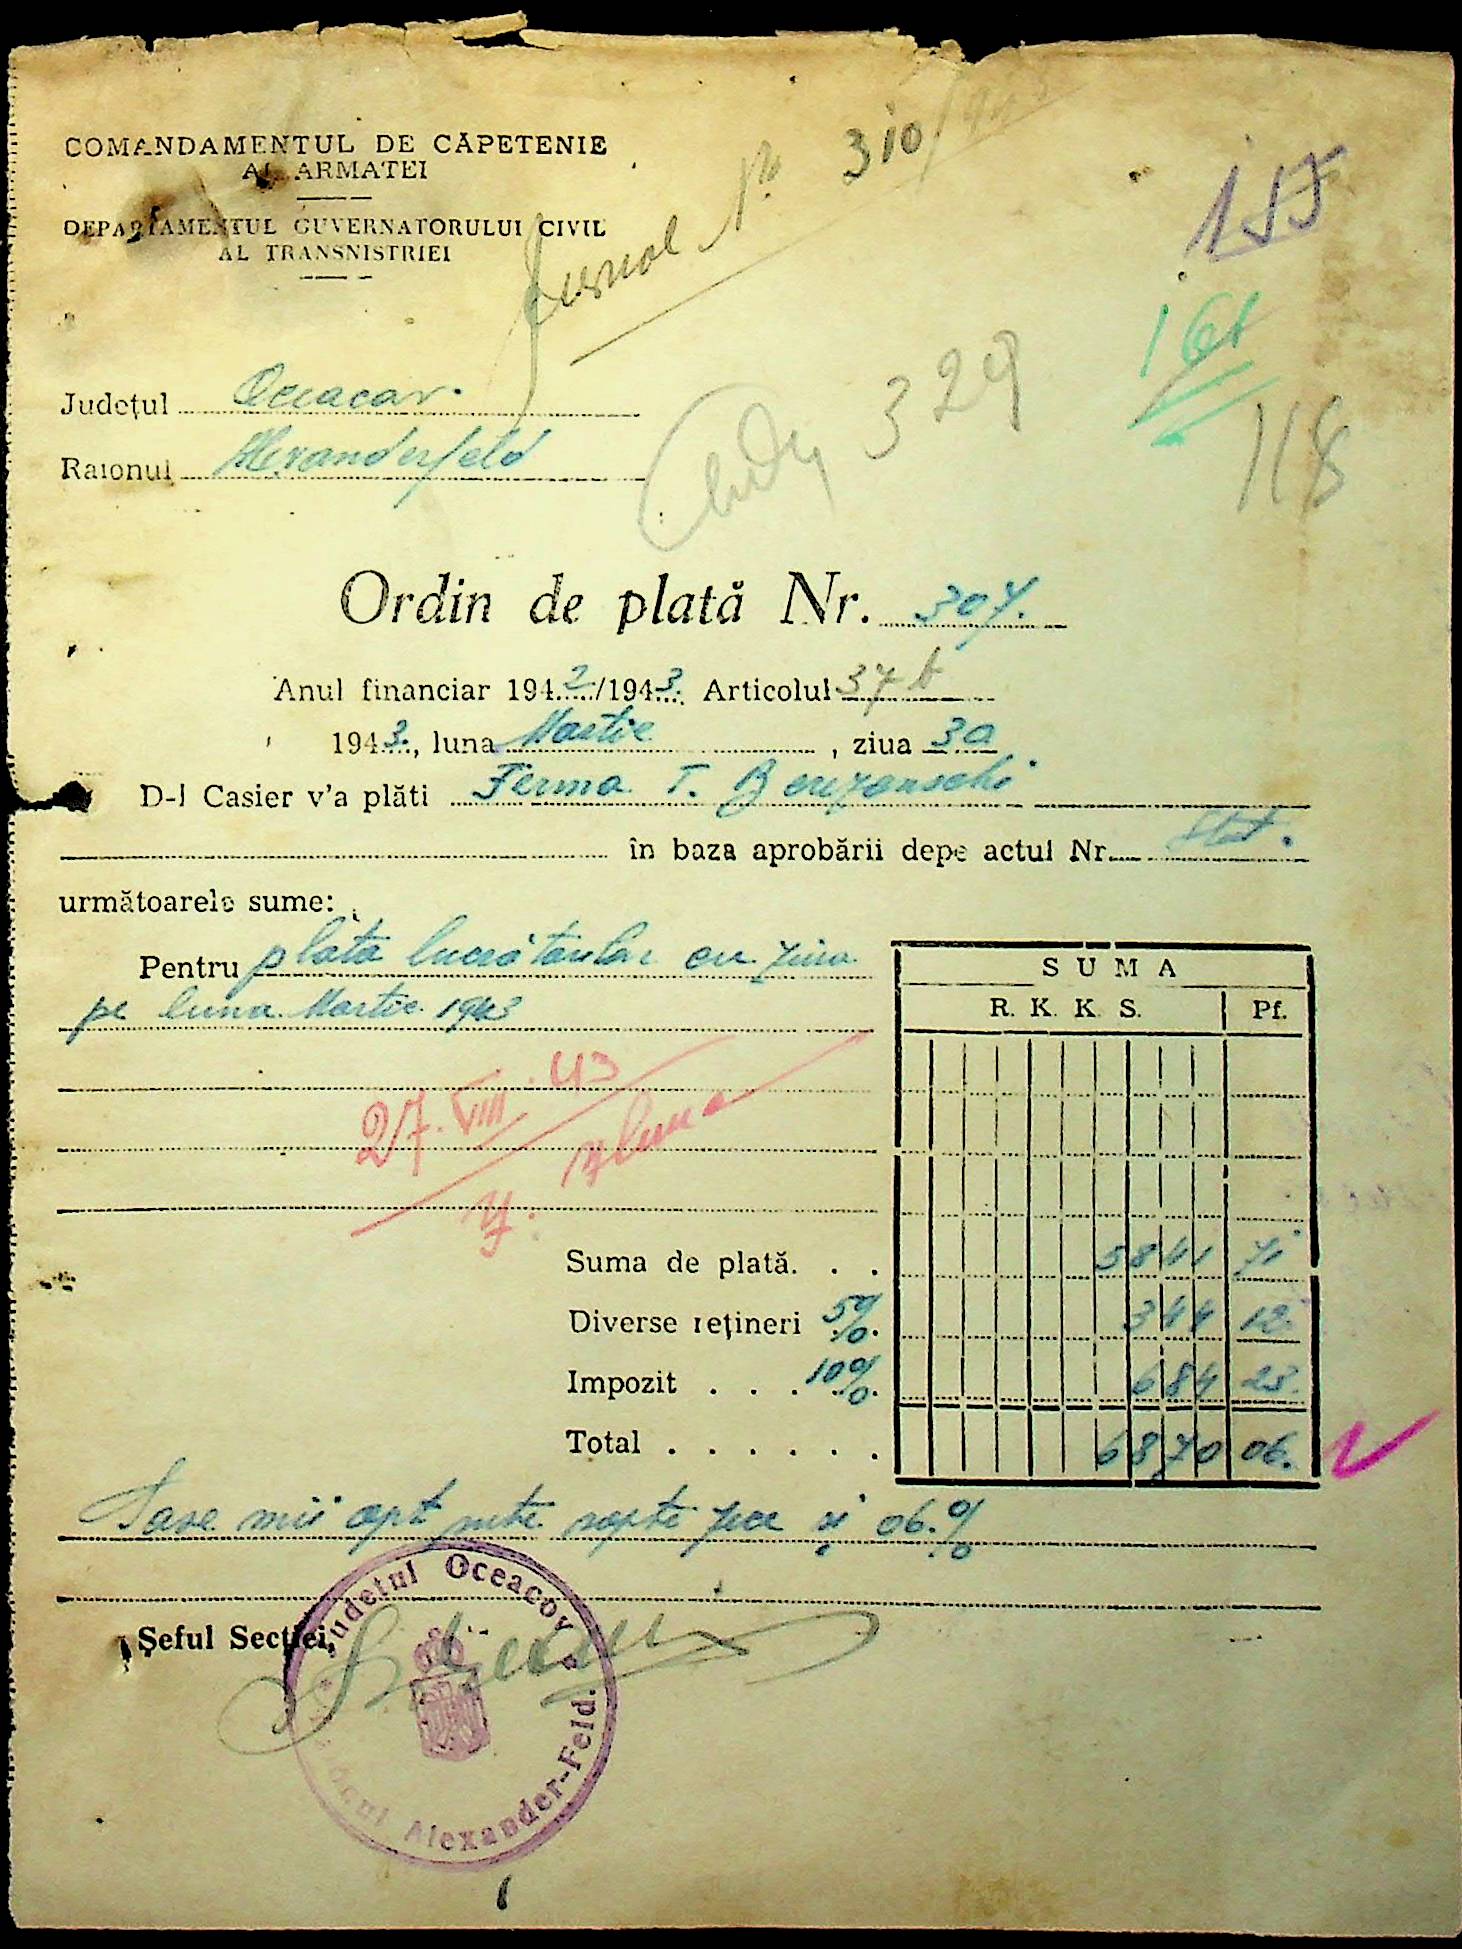 COMANDAMENTUL DE CĂPETENIE
AL ARMATEI
DEPARTAMENTUL GUVERNATORULUI CIVIL
AL TRANSNISTRIEI
Jurnal Nr. 310/943
157
161
329
118
Judeţul Oceacov.
Raionul Alexanderfeld
Ordin de plată Nr. 307.
Anul financiar 1942/1943. Articolul 37 b
1943., luna Martie , ziua 30
D-l Casier v'a plăti Ferma T. Berezanschi
în baza aprobării depe actul Nr. Stat.
următoarele sume:
Pentru plata lucrătorilor cu ziua
pe luna Martie 1943
27.VIII.43
SUMA
R. K. K. S. Pf.
Suma de plată. . . 5841 71
Diverse reţineri 5% 344 12
Impozit . . . 10% 684 23.
Total . . . . . . 6870 06.
Şase mii opt sute şapte zeci şi 06.%
Şeful Secţiei,
Judeţul Oceacov
Alexander-Feld.